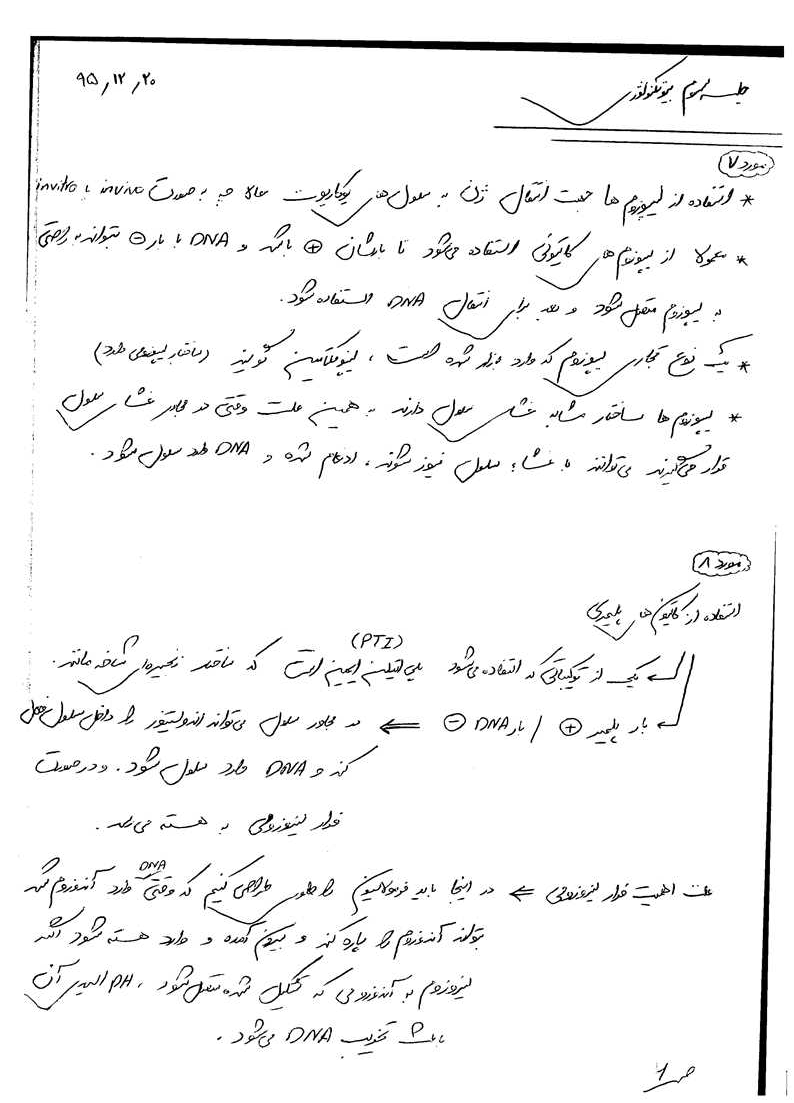 جلسه سوم بیوتکنولوژی
۹۵,۱۲,۲۰
مورد ۷
* استفاده از لیپوزوم ها جهت انتقال ژن به سلول های یوکاریوت حالا چه به صورت invivo یا invitro
* معمولا از لیپوزوم های کاتیونی استفاده می‌شود تا بارشان ⊕ باشد و DNA با بار ⊖ بتواند به راحتی
به لیپوزوم متصل شود و بعد برای انتقال DNA استفاده شود.
* یک نوع تجاری لیپوزوم که وارد بازار شده است، لیپوفکتامین گویند (ساختار لیپوزومی دارد)
* لیپوزوم ها ساختار مشابه غشای سلول دارند به همین علت وقتی در مجاور غشای سلول
قرار می‌گیرند می‌توانند با غشاء سلول فیوز شوند، ادغام شده و DNA وارد سلول می‌شود.
مورد ۸
استفاده از کاتیون های پلیمری
یکی از ترکیباتی که استفاده می‌شود پلی اتیلن ایمین است (PTI) که ساختار زنجیره‌ای شاخه مانند.
بار پلیمر ⊕ / بار DNA ⊖ ⇐ در مجاور سلول می‌تواند اندوسیتوز را داخل سلول فعال
کند و DNA وارد سلول شود. و در صورت
فرار لیزوزومی به هسته می‌رسد.
علت اهمیت فرار لیزوزومی ⇐ در اینجا باید فرمولاسیون را طوری طراحی کنیم که وقتی DNA وارد آندوزوم شد
بتواند آندوزوم را پاره کند و بیرون آمده و وارد هسته شود اگر
لیزوزوم به آندوزومی که تشکیل شده متصل شود، PH اسیدی آن
باعث تخریب DNA می‌شود.
ص ۶